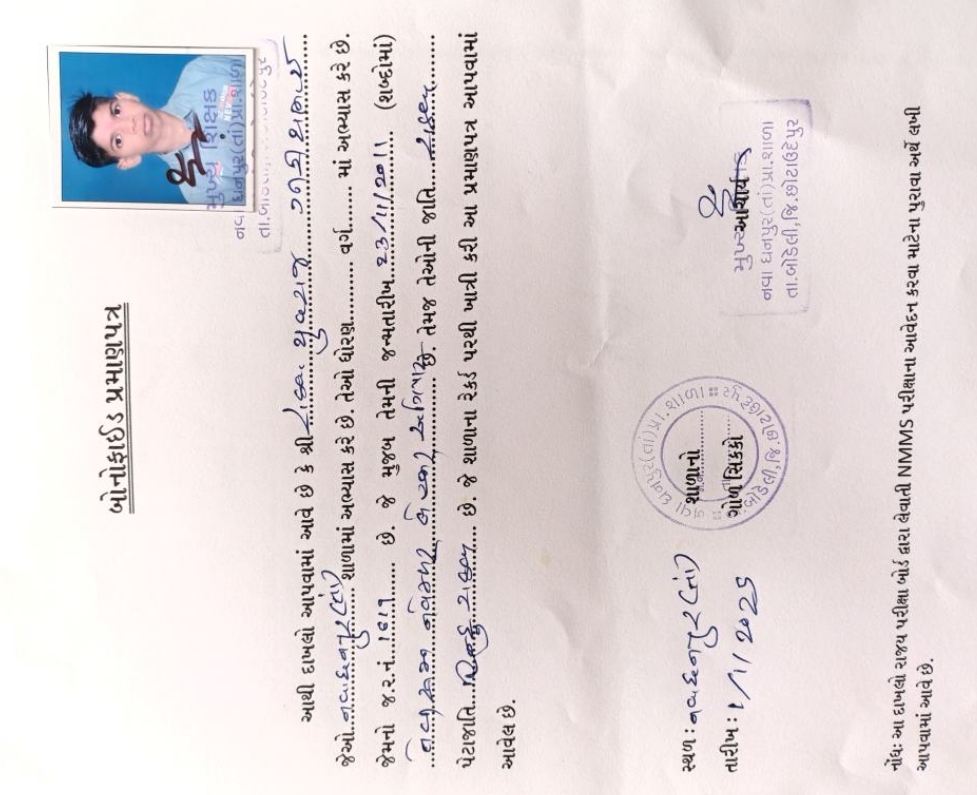 બોનોફાઈડ પ્રમાણપત્ર
આથી દાખલો આપવામાં આવે છે કે શ્રી રાઠવા યુવરાજ
જેઓ નવાધનપુર(તાં) શાળામાં અભ્યાસ કરે છે. તેઓ ધોરણ............ વર્ગ........ માં અભ્યાસ કરે છે.
જેમનો જ.ર.નં. ૧૬૧૧ છે. જે મુજબ તેમની જન્મતારીખ ૨૩/૧૧/૨૦૧૧ (શબ્દોમાં)
બે હજાર અગિયાર છે. તેમજ તેઓની જાતિ રાઠવા
પેટાજાતિ...હિન્દુ રાઠવા... છે. જે શાળાના રેકર્ડ પરથી ખાત્રી કરી આ પ્રમાણપત્ર આપવામાં
આવેલ છે.
મુખ્ય શિક્ષક
નવા ધનપુર(તાં)પ્રા.શાળા
સ્થળ : નવાધનપુર(તાં)
તારીખ : ૧/૧/૨૦૨૫
નવા ધનપુર(તાં)પ્રા.શાળા
બોડેલી,જિ.છોટાઉદેપુર
શાળાનો
ગોળ સિક્કો
આચાર્ય
નવા ધનપુર(તાં)પ્રા.શાળા
તા.બોડેલી,જિ.છોટાઉદેપુર
નોંધ: આ દાખલો રાજ્ય પરીક્ષા બોર્ડ દ્વારા લેવાતી NMMS પરીક્ષાના આવેદન કરવા માટેના પુરાવા અર્થે લખી
આપવામાં આવે છે.